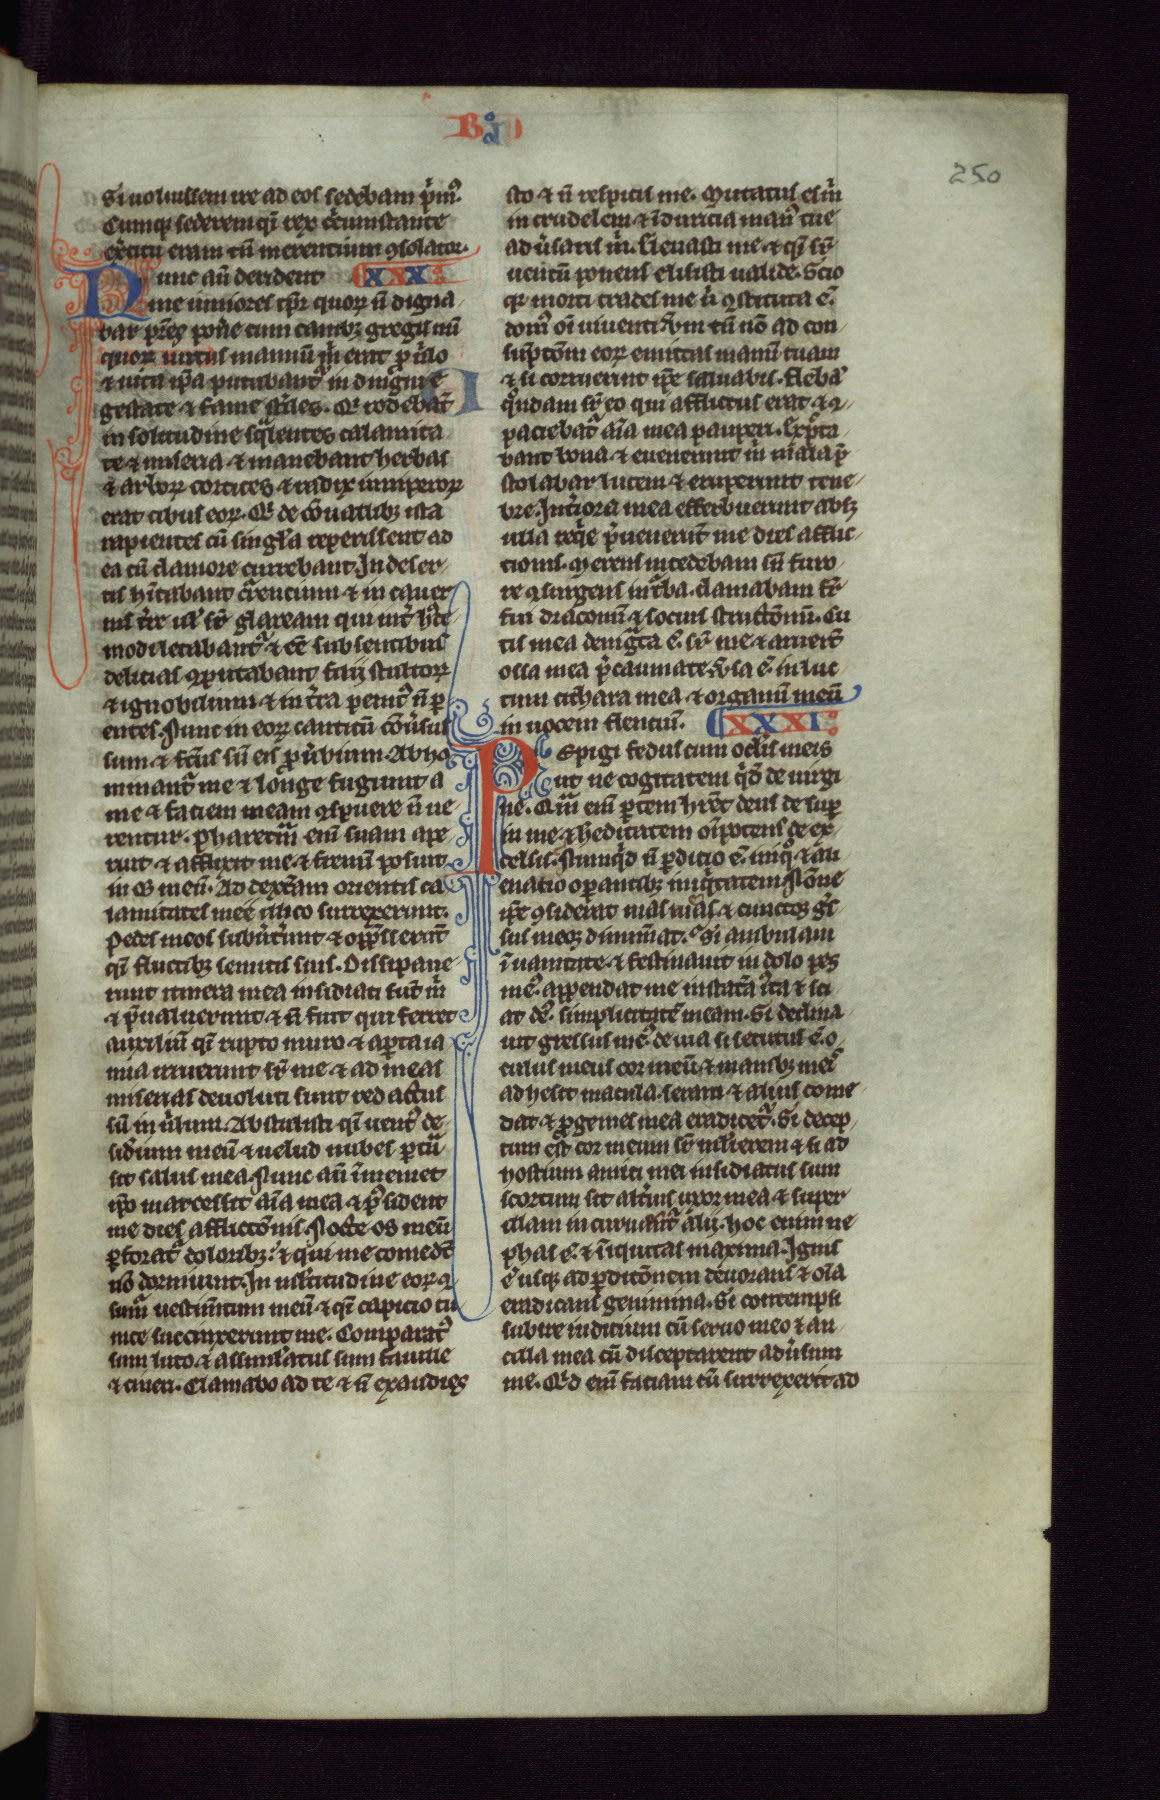 B
250
Si uoluissem ire ad eos sedebam p̾mꝰ.
Cumqꝫ sederem q̾i rex circumstante
exercitu eram tn̄ merentium ꝯsolator.
Nunc aūt derident XXX
me iuniores tp̄r quoꝝ n̄ digna
bar pr̄es pon̾e cum canibꝫ gregis mei
quoꝝ uirtus manuū m̾ erat pro nichilo
⁊ uita ip̄a putabant̾ indigni e
gestate ⁊ fame st̾iles. Qi rodebāt
in solitudine sq̾lentes calamita
te ⁊ miseria ⁊ mandebant herbas
⁊ arboꝝ cortices ⁊ radix iunipeꝝoꝝ
erat cibus eoꝝ. Qi de cōuallibꝫ ista
rapientes cū singl̾a repperissent ad
ea cū clamore currebant. In deser
tis hītabant torrentium ⁊ in cauer
nis t̾re ul̾ sr̄ glaream qui int̾ hꝰce
modi letabant̾ ⁊ eē sub sentibus
delicias ꝯputabant filij stultoꝝ
⁊ ignobilium ⁊ in t̾ra penitꝰ n̄ p̱
entes. Nunc in eoꝝ canticū cōu̾sus
sum ⁊ fc̄us sū eis prou̾bium. Abho
minant̾ me ⁊ longe fugiunt a
me ⁊ faciem meam ꝯspuere n̄ ue
rentur. Pharetrā enī suam ape
ruit ⁊ afflixit me ⁊ frenū posuit
in os meū. Ad dext̾am orientis ca
lamitates mee ilico surrexerunt.
Pedes meos subu̾terunt ⁊ opp̄sserūt
q̾i fluctibꝫ semitis suis. Dissipaue
runt itinera mea insidiati sūt m̾
⁊ p̾ualuerunt ⁊ n̄ fuit qui ferret
auxiliū q̾i rupto muro ⁊ ap̱ta ia
nua irruerunt sr̄ me ⁊ ad meas
miserias deuoluti sunt redactus
sū in nichilum. Abstulisti q̾i uentꝰ de
sid̾ium meū ⁊ uelud nubes p̱tn̄
sit salus mea. Nunc aūt ī memet
ip̄o marcessit aīa mea ⁊ possident
me dies afflictōnis. Nocte os meū
p̱forat̾ doloribꝫ ⁊ qui me comedūt
nō dormiunt. In ml̾titudine eoꝝ ꝯ
sumit̾ uestimentum meū ⁊ q̾i capicio tu
nice succinxerunt me. Comparatꝰ
sum luto ⁊ assimilatus sum fauille
⁊ cineri. Clamabo ad te ⁊ n̄ exaudies
sto ⁊ n̄ respicis me. Mutatus es m̾
in crudelem ⁊ ī duricia manꝰ tue
adu̾saris m̾. Eleuasti me ⁊ q̾i sr̄
uentū ponens elisisti ualide. Scio
qꝛ morti trades me ubi ꝯstituta ē
domꝰ oī uiuenti. Vm̄ tn̄ nō ad con
sūptōem eoꝝ emittas manū tuam
⁊ si corruerint ip̄e saluabis. Flebā
q̾ndam sr̄ eo qui afflictus erat ⁊ ꝯ
paciebat̾ aīa mea pauperi. Exp̄cta
bam bona ⁊ euenerunt m̾ mala p̄
stolabar lucem ⁊ eruperunt tene
bre. Int̾iora mea efferbuerunt absqꝫ
ulla req̾e p̾uenerūt me dies afflic
tionis. Merens incedebam sn̄ furo
re ꝯsurgens in t̾ba clamabam fr̄
fui draconū ⁊ socius structōnū. Cu
tis mea denig̾ta ē sr̄ me ⁊ aruerūt
ossa mea p̄ caumate. V̾sa ē in luc
tum cithara mea ⁊ organū meū
in uocem flentiū. XXXI
Pepigi fedus cum oculis meis
ut ne cogitarem q̾dē de uirgi
ne. Quā enī p̱tem hr̄et deus de sup̱
in me ⁊ heditatem oīpotens de ex
celsis. Nunq̾d n̄ p̱ditio ē iniqꝰ ⁊ ali
enatio op̱antibꝫ iniq̾tatem. Nōne
ip̄e ꝯsiderat uias meas ⁊ cunctos gres
sus meos dinumerat. Si ambulaui
ī uanitate ⁊ festinauit in dolo pes
meꝰ. appendat me in statera iusta ⁊ sci
at dꝰ simplicitatē meam. Si declina
uit gressus meꝰ de uia si secutus ē o
culus meus cor meū ⁊ manibꝫ meis
adhesit macula. seram ⁊ alius come
dat ⁊ progenies mea eradicet̾. Si decep
tum est cor meum sr̄ mulierem ⁊ si ad
hostium amici mei insidiatus sum
scortum sit alt̾ius uxor mea ⁊ super
illam incuruent̾ alij. hoc enim ne
phas ē. ⁊ īiquitas maxima. Ignis
ē usqꝫ ad p̱ditōnem deuorans ⁊ oīa
eradicans genimina. Si contempsi
subire iudicium cū seruo meo ⁊ an
cilla mea cū disceptarent adu̾sum
me. Q̾id enī faciam cū surrexerit ad